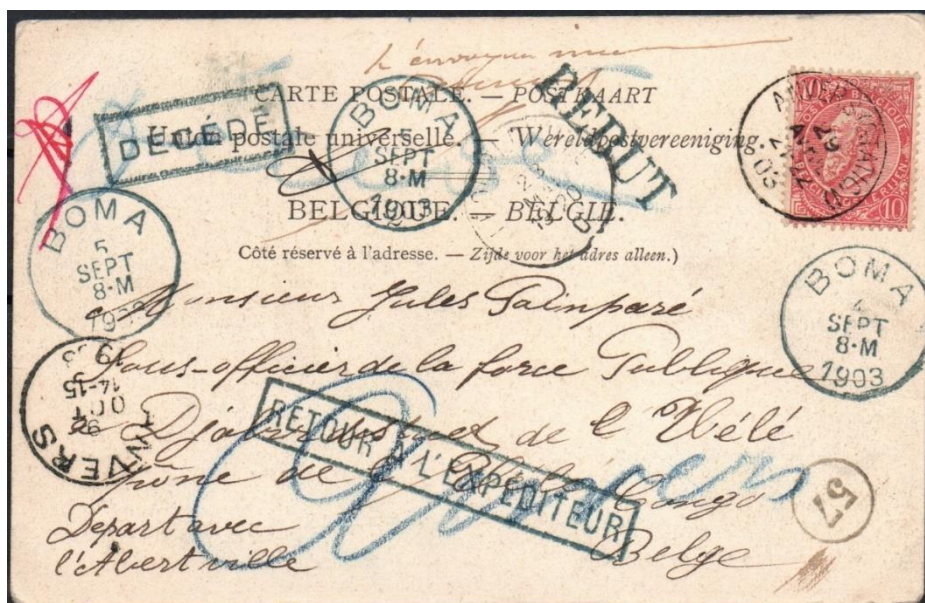 L'envoyeur
CARTE POSTALE. — POSTKAART
Union postale universelle. — Wereldpostvereeniging.
BELGIQUE. — BELGIE.
Côté réservé à l'adresse. — Zijde voor het adres alleen.)
DÉCÉDÉ
REBUT
BOMA
5
SEPT
8-M
1903
BOMA
5
SEPT
8-M
BOMA
4
SEPT
8-M
1903
10
Monsieur Jules Painparé
Sous-officier de la force Publique
Djabir de l'Uélé
de Congo
Belge
Départ avec
l'Abertville
RETOUR À L'EXPÉDITEUR
Anvers
ANVERS
OCT
14-15
57